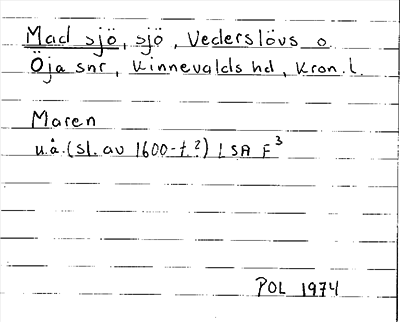 Mad sjö, sjö, Vederslövs o
Öja snr, Kinnevalds hd, Kron. l.
Maren
u.å. (sl. av 1600-t?) LSA F3
POL 1974